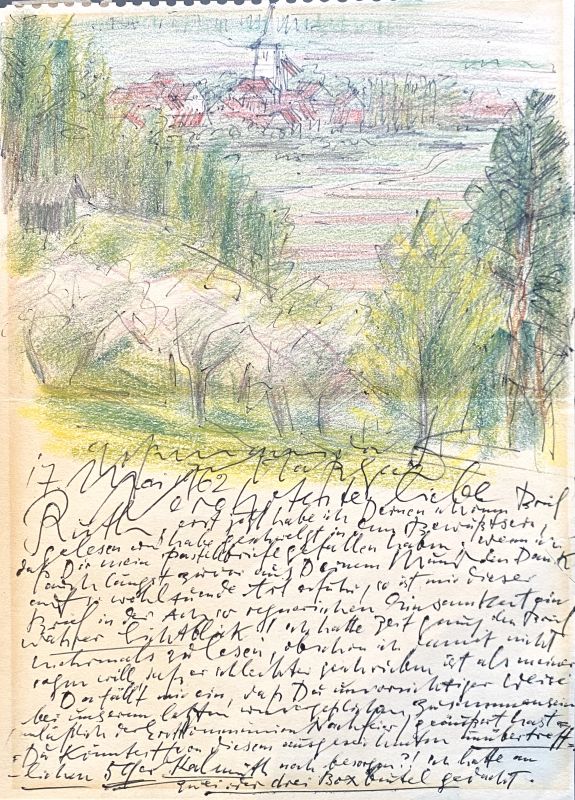 17 Mai 62
Ruth liebe
erst jetzt habe ich Deinen schönen Brief
gelesen und habe geschwelgt in dem Bewußtsein,
daß Dir meine Pastellbriefe gefallen haben. Wenn ich
auch längst zuvor aus Deinem Mund den Dank
auf wohltuende Art erfuhr, so ist mir dieser
Brief in der Ach so regnerischen Einsamkeit ein
wahrer Lichtblick! Ich hatte Zeit genug den Brief
mehrmals zu lesen, obschon ich damit nicht
sagen will, daß er schlechter geschrieben ist als meiner
Da fällt mir ein, daß Du unvorsichtiger Weise
bei unserem letzten Zusammensein
(anläßlich der Erstkommunion Nachfeier) geäußert hast
Du könntest von diesem ausgezeichneten unübertreff=
=lichen 59er Kalmuth noch besorgen?! Ich hatte an
zwei oder drei Boxbeutel gedacht.